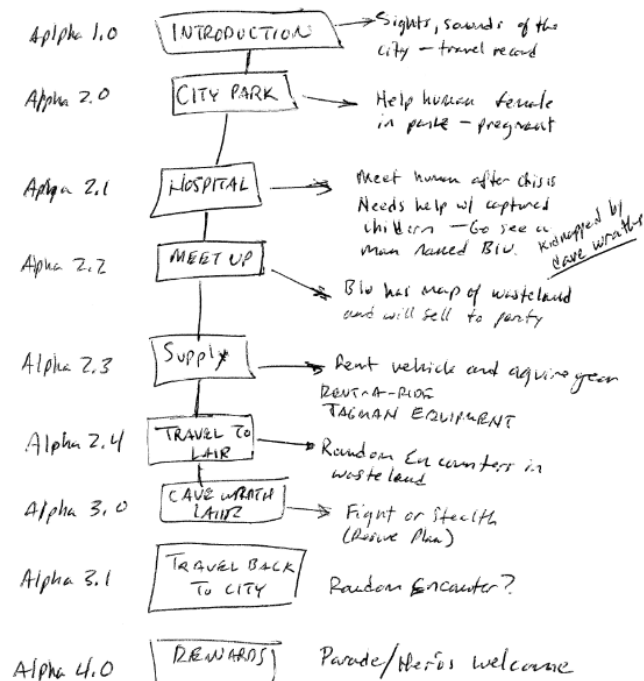 Aplpha 1.0
INTRODUCTION
Sights, sounds of the
city - travel record
Alpha 2.0
CITY PARK
Help human female
in park - pregnant
Alpha 2.1
HOSPITAL
Meet human after chisis
Needs help w/ captured
children - Go see a
man named Blu.
Kidnapped by
cave wraths
Alpha 2.2
MEET UP
Blu has map of wasteland
and will sell to party
Alpha 2.3
Supply
Rent vehicle and aquire gear
RENT-A-RIDE
TAGMAN EQUIPMENT
Alpha 2.4
TRAVEL TO
LAIR
Random Encounters in
wasteland
Alpha 3.0
CAVE WRATH
LAIR
Fight or Stealth
(Rescue Plan)
Alpha 3.1
TRAVEL BACK
TO CITY
Random Encouter?
Alpha 4.0
REWARDS
Parade/Heros welcome